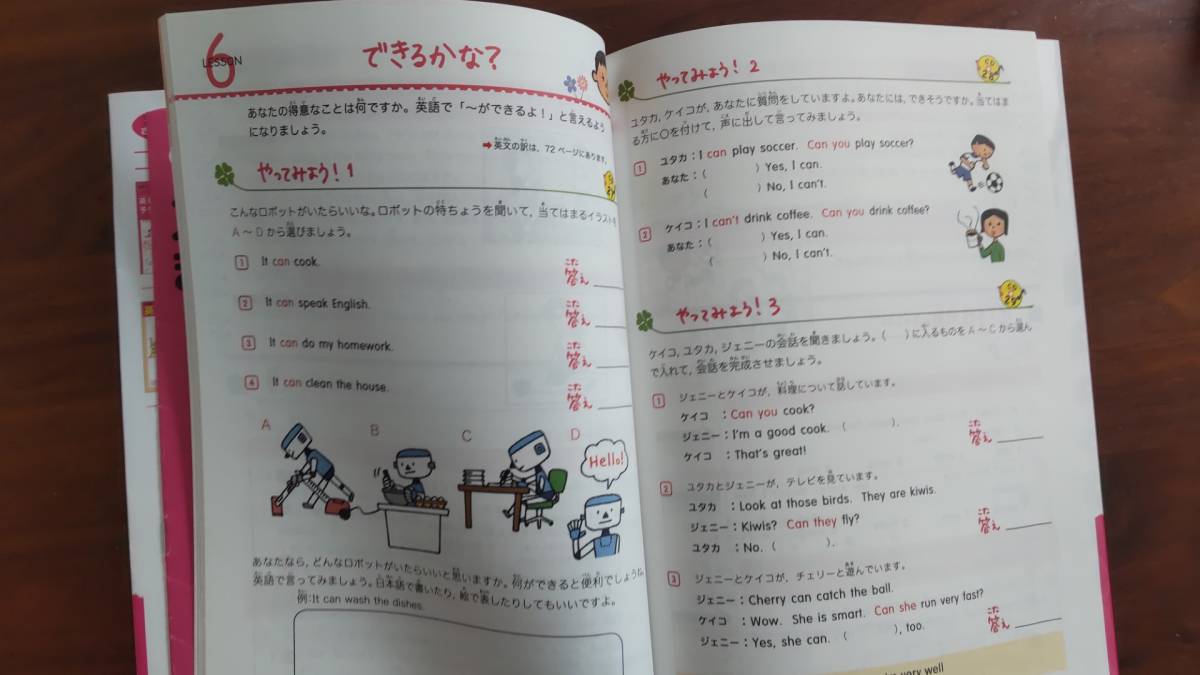 LESSON 6
できるかな？
あなたの得意なことは何ですか。英語で「〜ができるよ！」と言えるよう
になりましょう。
➡英文の訳は、72ページにあります。
やってみよう！1
こんなロボットがいたらいいな。ロボットの特ちょうを聞いて，当てはまるイラストを
A〜Dから選びましょう。
1 It can cook.
答え
2 It can speak English.
答え
3 It can do my homework.
答え
4 It can clean the house.
答え
A B C D
Hello!
あなたなら，どんなロボットがいたらいいと思いますか。何ができると便利でしょうか。
英語で言ってみましょう。日本語で書いたり，絵で表したりしてもいいですよ。
例：It can wash the dishes.
やってみよう！2
CD 28
ユタカ，ケイコが，あなたに質問をしていますよ。あなたには，できそうですか。当てはま
る方に○を付けて，声に出して言ってみましょう。
1 ユタカ：I can play soccer. Can you play soccer?
あなた：( ) Yes, I can.
( ) No, I can't.
2 ケイコ：I can't drink coffee. Can you drink coffee?
あなた：( ) Yes, I can.
( ) No, I can't.
やってみよう！3
CD 29
ケイコ，ユタカ，ジェニーの会話を聞きましょう。( )に入るものをA〜Cから選ん
で入れて，会話を完成させましょう。
1 ジェニーとケイコが，料理について話しています。
ケイコ ：Can you cook?
ジェニー：I'm a good cook. ( ).
ケイコ ：That's great!
答え
2 ユタカとジェニーが，テレビを見ています。
ユタカ ：Look at those birds. They are kiwis.
ジェニー：Kiwis? Can they fly?
ユタカ ：No. ( ).
答え
3 ジェニーとケイコが，チェリーと遊んでいます。
ジェニー：Cherry can catch the ball.
ケイコ ：Wow. She is smart. Can she run very fast?
ジェニー：Yes, she can. ( ), too.
答え
very well